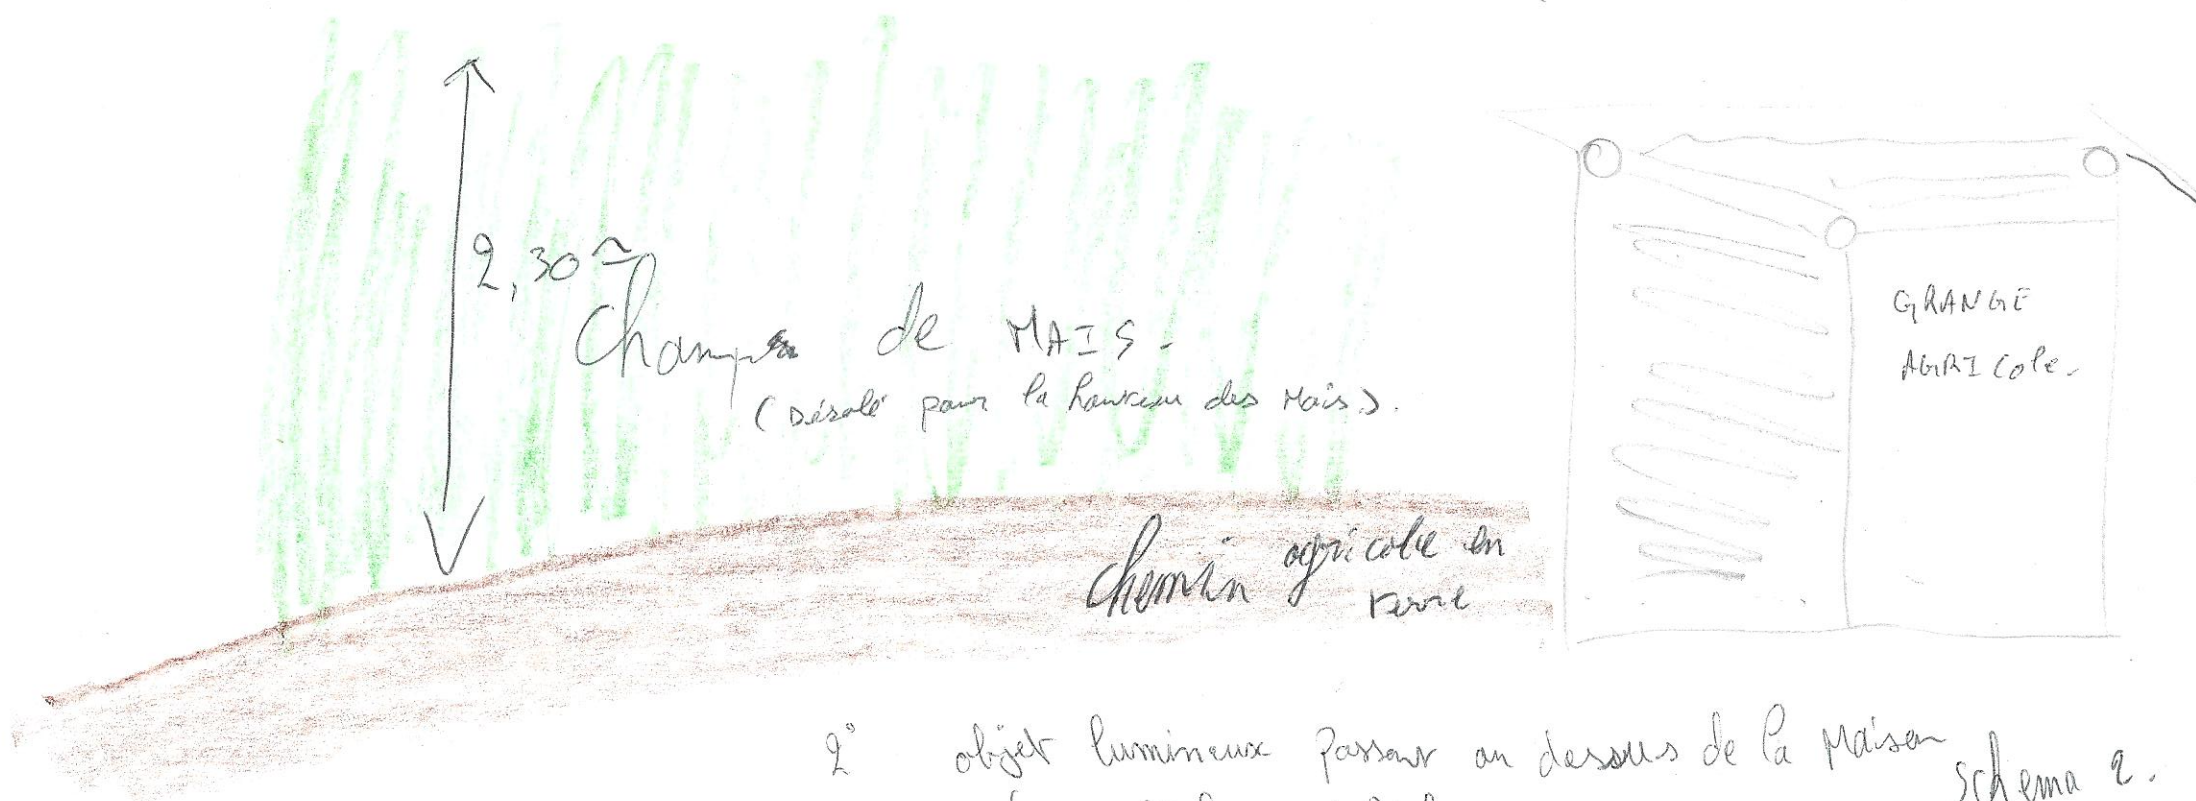 2,30 ≃
Champs de MAIS.
(Désolé pour la hauteur des Maïs).
GRANGE
AGRICole.
chemin agricole en
terre
2° objet lumineux passant au dessus de la Maison
schema 2.